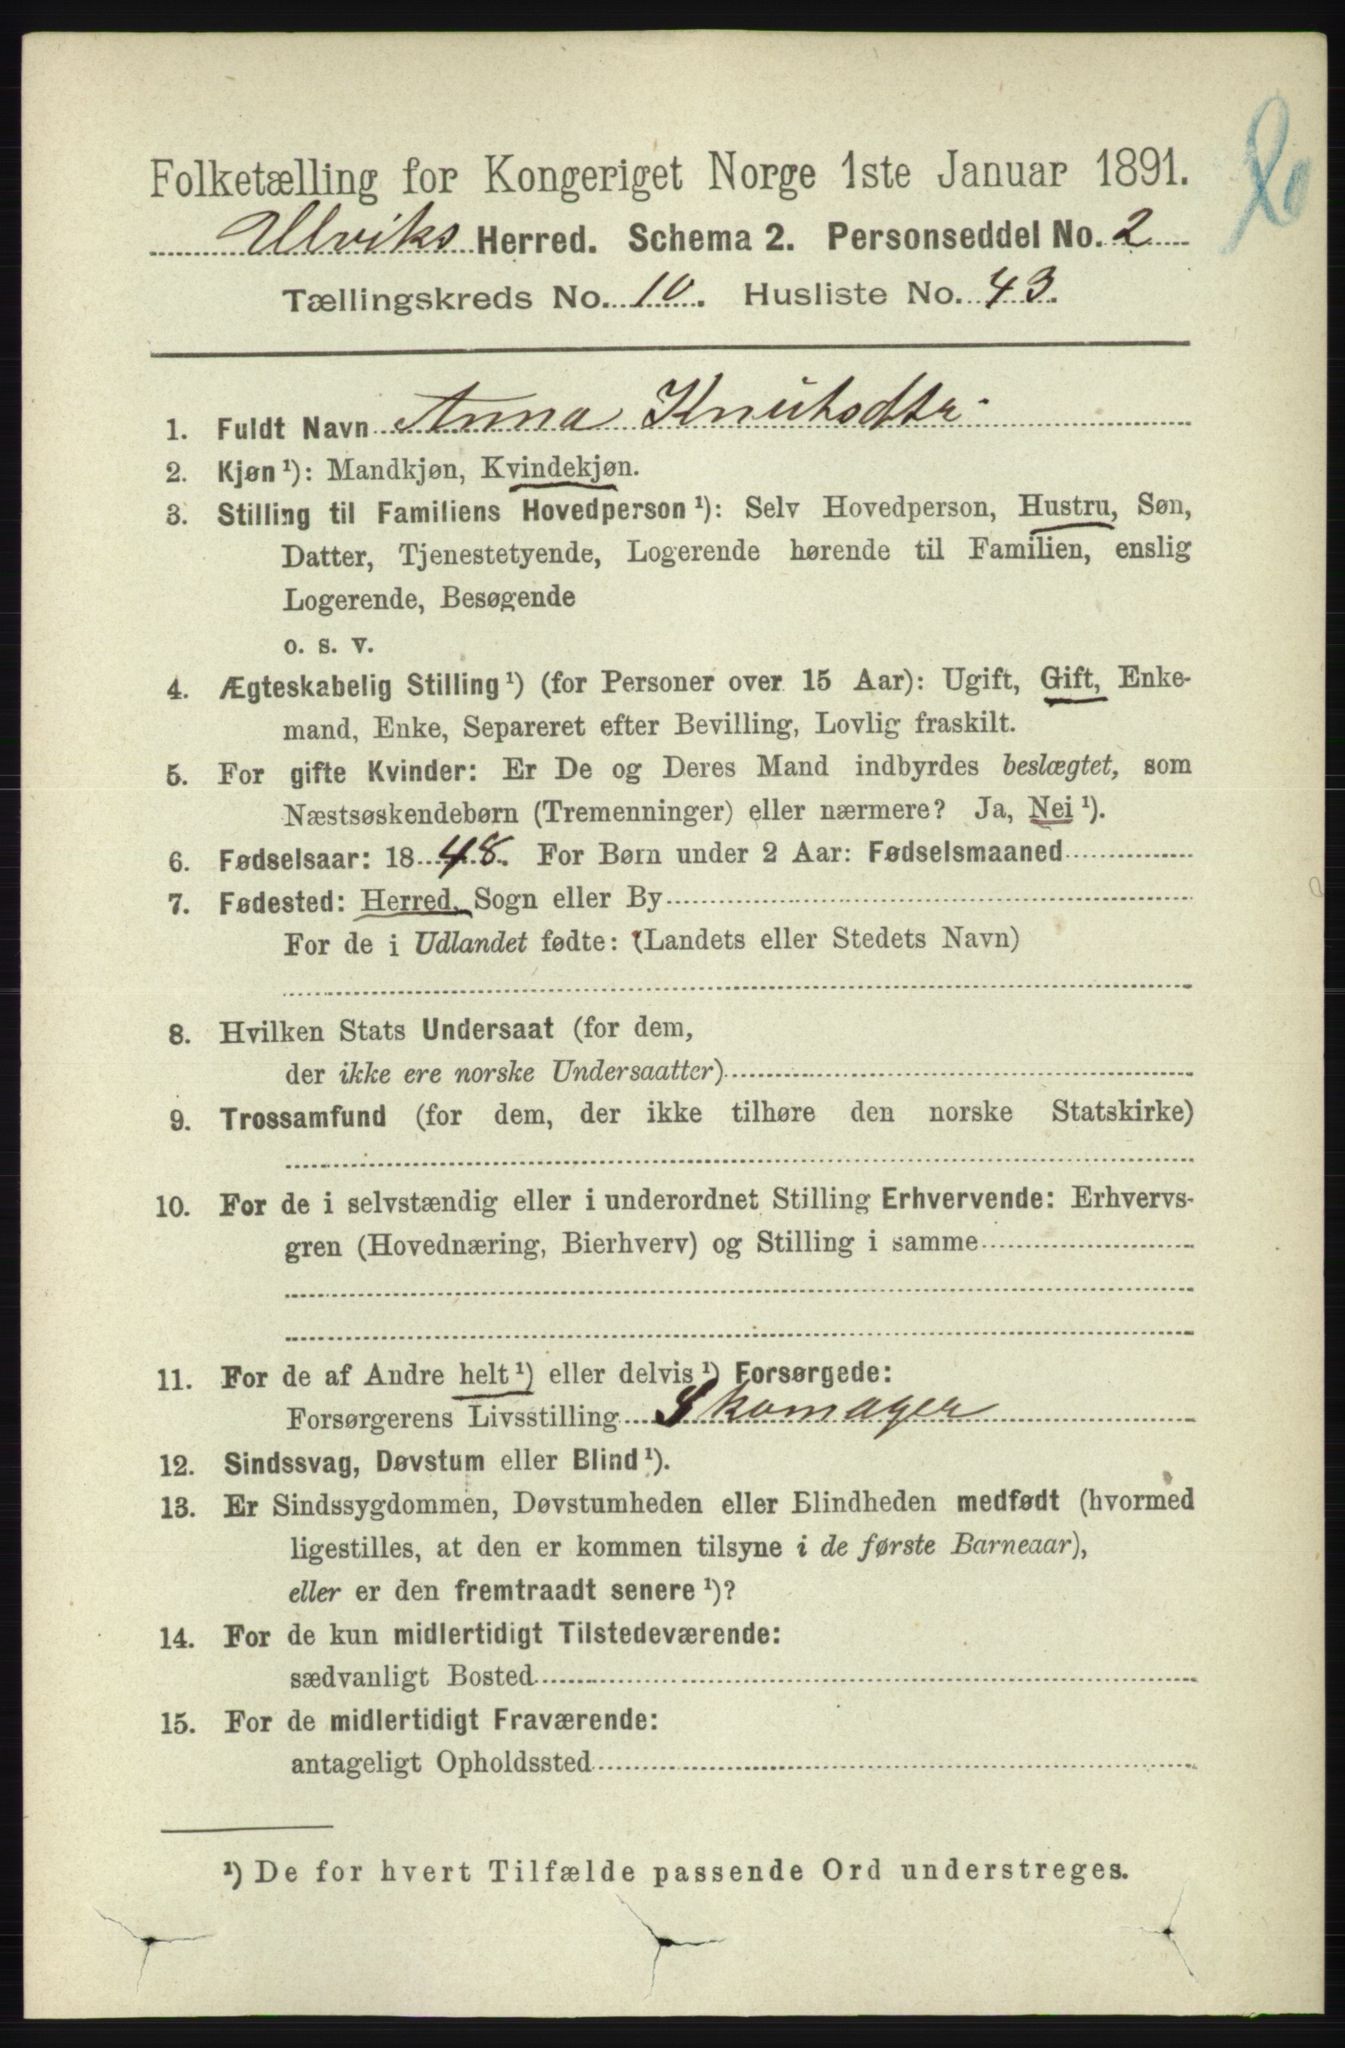 Folketælling for Kongeriget Norge 1ste Januar 1891.
Ulviks Herred. Schema 2. Personseddel No. 2
Tællingskreds No. 10. Husliste No. 43.
1. Fuldt Navn Anna Knutsdtr.
2. Kjøn ¹): Mandkjøn, Kvindekjøn.
3. Stilling til Familiens Hovedperson ¹): Selv Hovedperson, Hustru, Søn,
Datter, Tjenestetyende, Logerende hørende til Familien, enslig
Logerende, Besøgende
o. s. v.
4. Ægteskabelig Stilling ¹) (for Personer over 15 Aar): Ugift, Gift, Enke-
mand, Enke, Separeret efter Bevilling, Lovlig fraskilt.
5. For gifte Kvinder: Er De og Deres Mand indbyrdes beslægtet, som
Næstsøskendebørn (Tremenninger) eller nærmere? Ja, Nei ¹).
6. Fødselsaar: 1848. For Børn under 2 Aar: Fødselsmaaned
7. Fødested: Herred, Sogn eller By
For de i Udlandet fødte: (Landets eller Stedets Navn)
8. Hvilken Stats Undersaat (for dem,
der ikke ere norske Undersaatter)
9. Trossamfund (for dem, der ikke tilhøre den norske Statskirke)
10. For de i selvstændig eller i underordnet Stilling Erhvervende: Erhvervs-
gren (Hovednæring, Bierhverv) og Stilling i samme
11. For de af Andre helt ¹) eller delvis ¹) Forsørgede:
Forsørgerens Livsstilling Skomager
12. Sindssvag, Døvstum eller Blind ¹).
13. Er Sindssygdommen, Døvstumheden eller Blindheden medfødt (hvormed
ligestilles, at den er kommen tilsyne i de første Barneaar),
eller er den fremtraadt senere ¹)?
14. For de kun midlertidigt Tilstedeværende:
sædvanligt Bosted
15. For de midlertidigt Fraværende:
antageligt Opholdssted
¹) De for hvert Tilfælde passende Ord understreges.